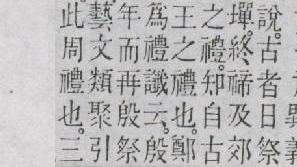 說。古者日祭
墠。終禘及郊
之禮。知自古
王之禮也。鄭
爲禮讖云。殷
年而再殷祭
藝文類聚引
此周禮也。三